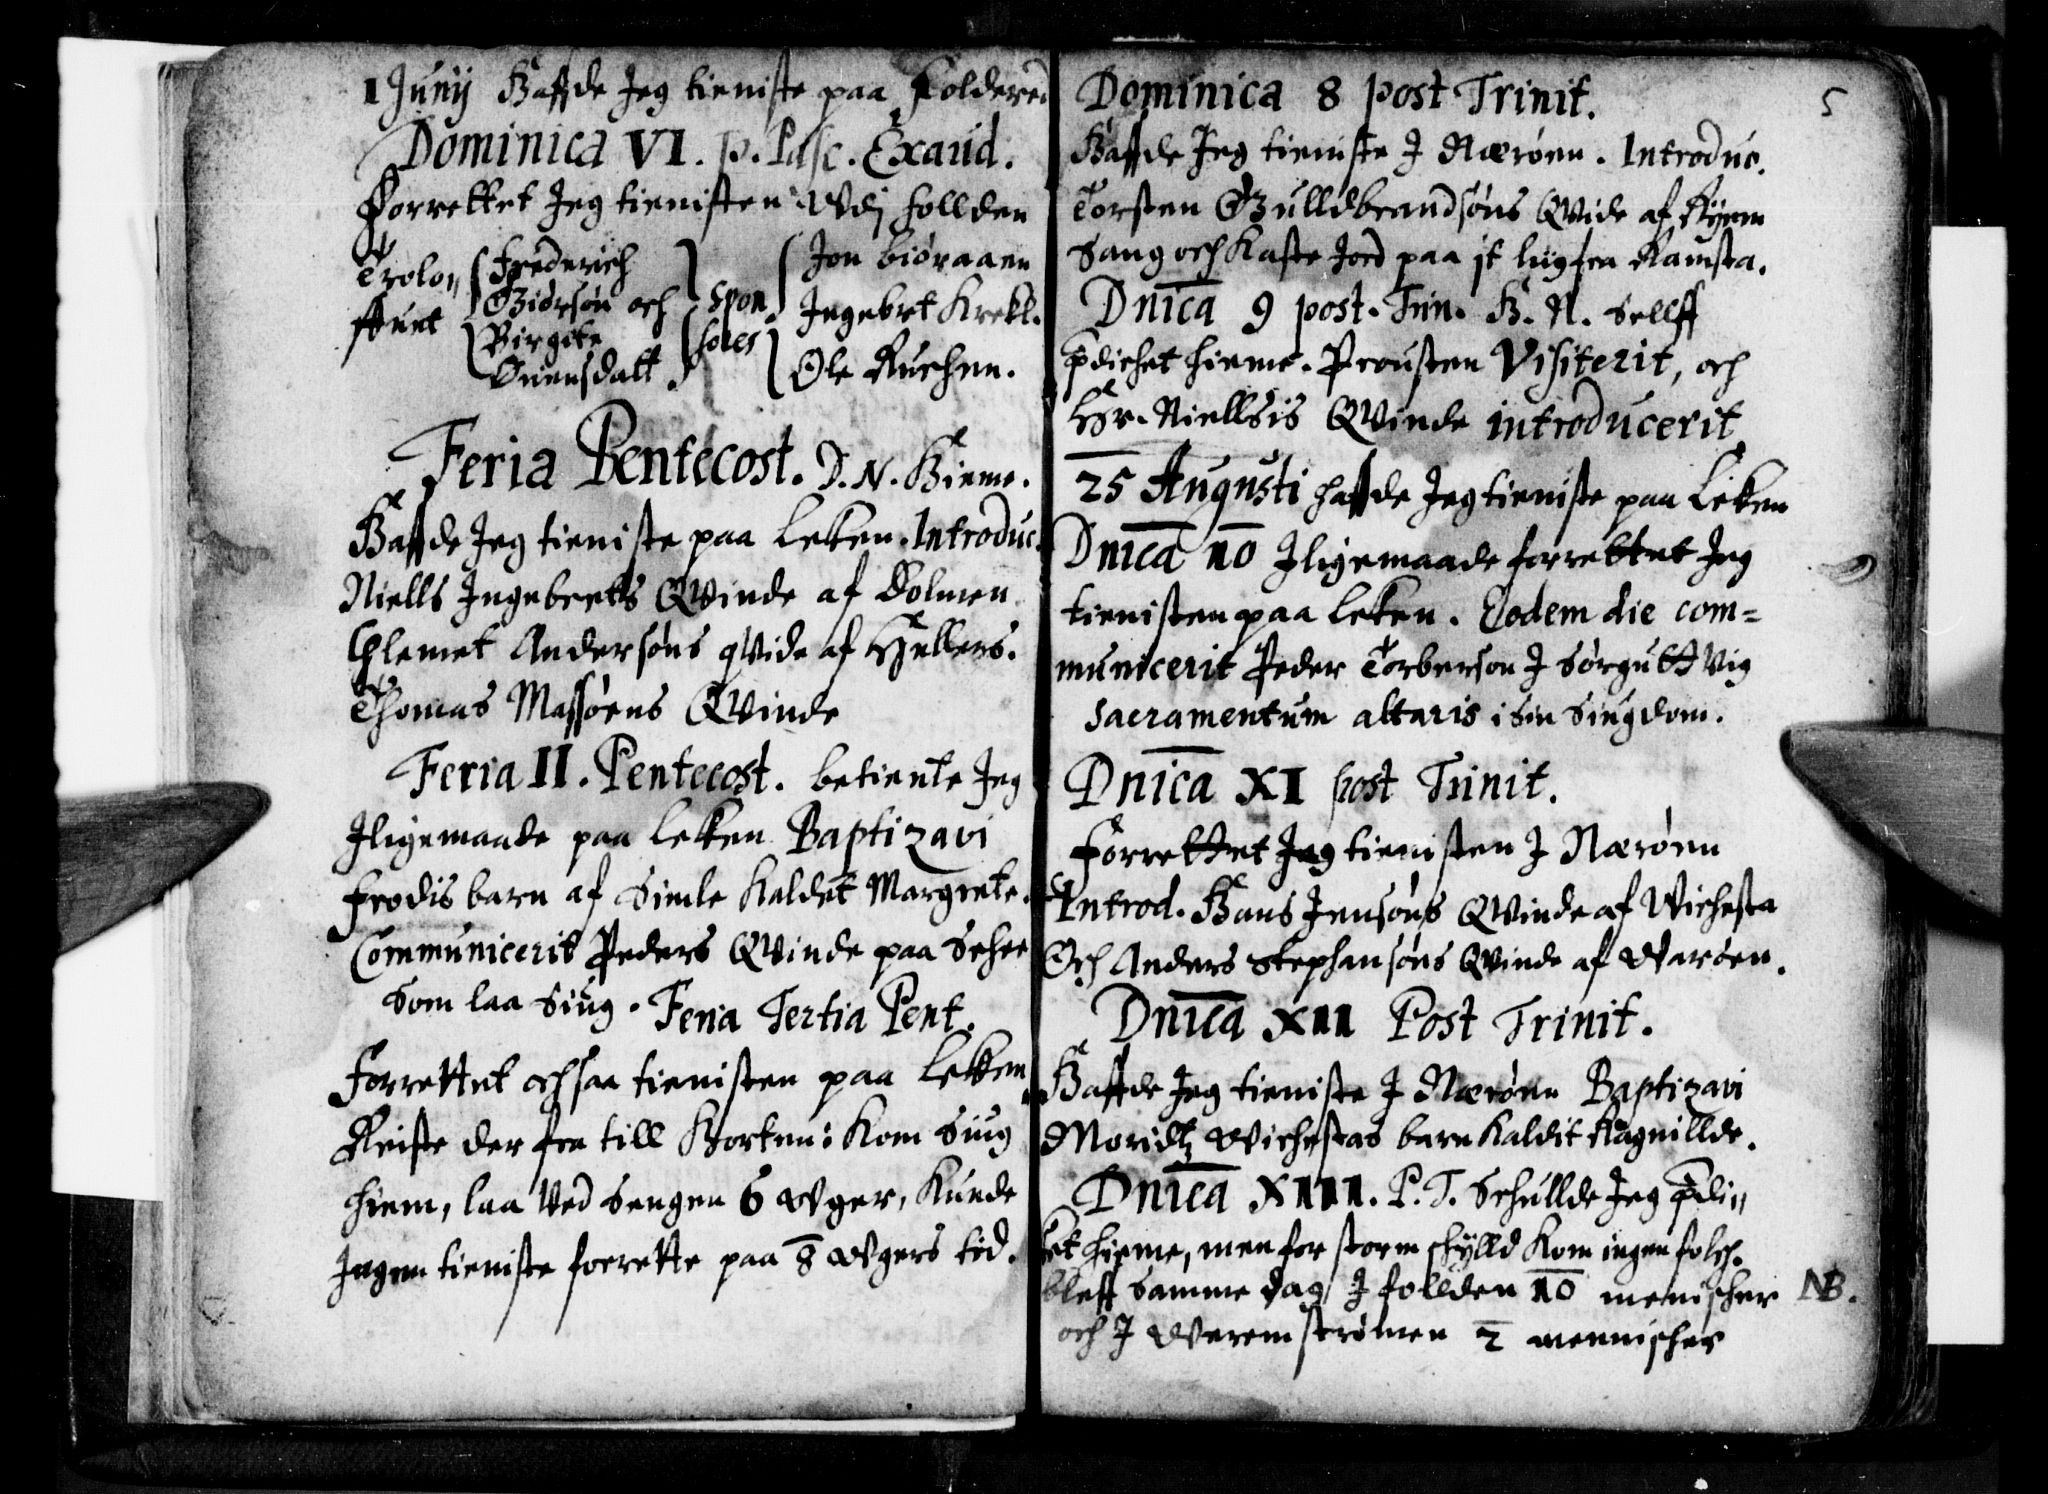 1 Junij Haffde Jeg tieniste paa Foldered
Dominica VI. p. Pasc. Exaud.
Forrettet Jeg tienisten Vdj follden
Trolo„ Frederich Jon Biøraaen
Giørsøn och spon Ingebrt Krekl.
ffuet Birgete sales
Suensdatt. Ole Ruchen.
Feria Pentecost. D. N. Hieme.
Haffde Jeg tieniste paa Leken. Introduc.
Niells Ingebretts Qvinde af Dolmen
Clemet Andersøns qvide af Hellers.
Thomas Massøens Qvinde
Feria II. Pentecost. betiente Jeg
Jligemaade paa Leken Baptizavi
Frodis barn af Simle kaldet Margrete.
Communicerit Peders Qvinde paa Schee
som laa Siug. Feria Tertia Pent.
Forrettet ochsaa tienisten paa Lekken
Reiste der fra till Horten: kom siug
hiem, laa ved sengen 6 vger, kunde
Ingen tieniste forrette paa 8 vgers tid.
Dominica 8 post Trinit. 5
Haffde Jeg tieniste J Nærøen. Introduc.
Torsten Gulldbrandsøns Qvide af Ryem
Sang och kaste Jord paa jt liig fra Ramsta.
Dnica 9 post. Trin. H. N. Sellff
pdichet hieme. Prousten Visiterit, och
Hr. Niellsis Qvinde introducerit
25 Augusti haffde Jeg tieniste paa Leken
Dnica 10 Jligemaade forrettet Jeg
tienisten paa Leken. Eodem die com=
municerit Peder Torberson J Sørgutt Vig
sacramentum altaris i sin Siugdom.
Dnica XI post Trinit.
Forrettet Jeg tienisten J Nærøen
Introd. Hans Jensøns Qvinde af Vichesta
Och Anders Stephansøns Qvinde af Varøen.
Dnica XII Post Trinit.
Haffde Jeg tieniste J Nærøen Baptizavi
Moridtz Vichestas barn kaldit Ragnillde.
Dnica XIII. P. T. Schullde Jeg pdi„
ket hieme, men for storm skylld kom ingen folch.
bleff samme dag J follden 10 menischer NB.
och J Verem strømen 2 mennischer